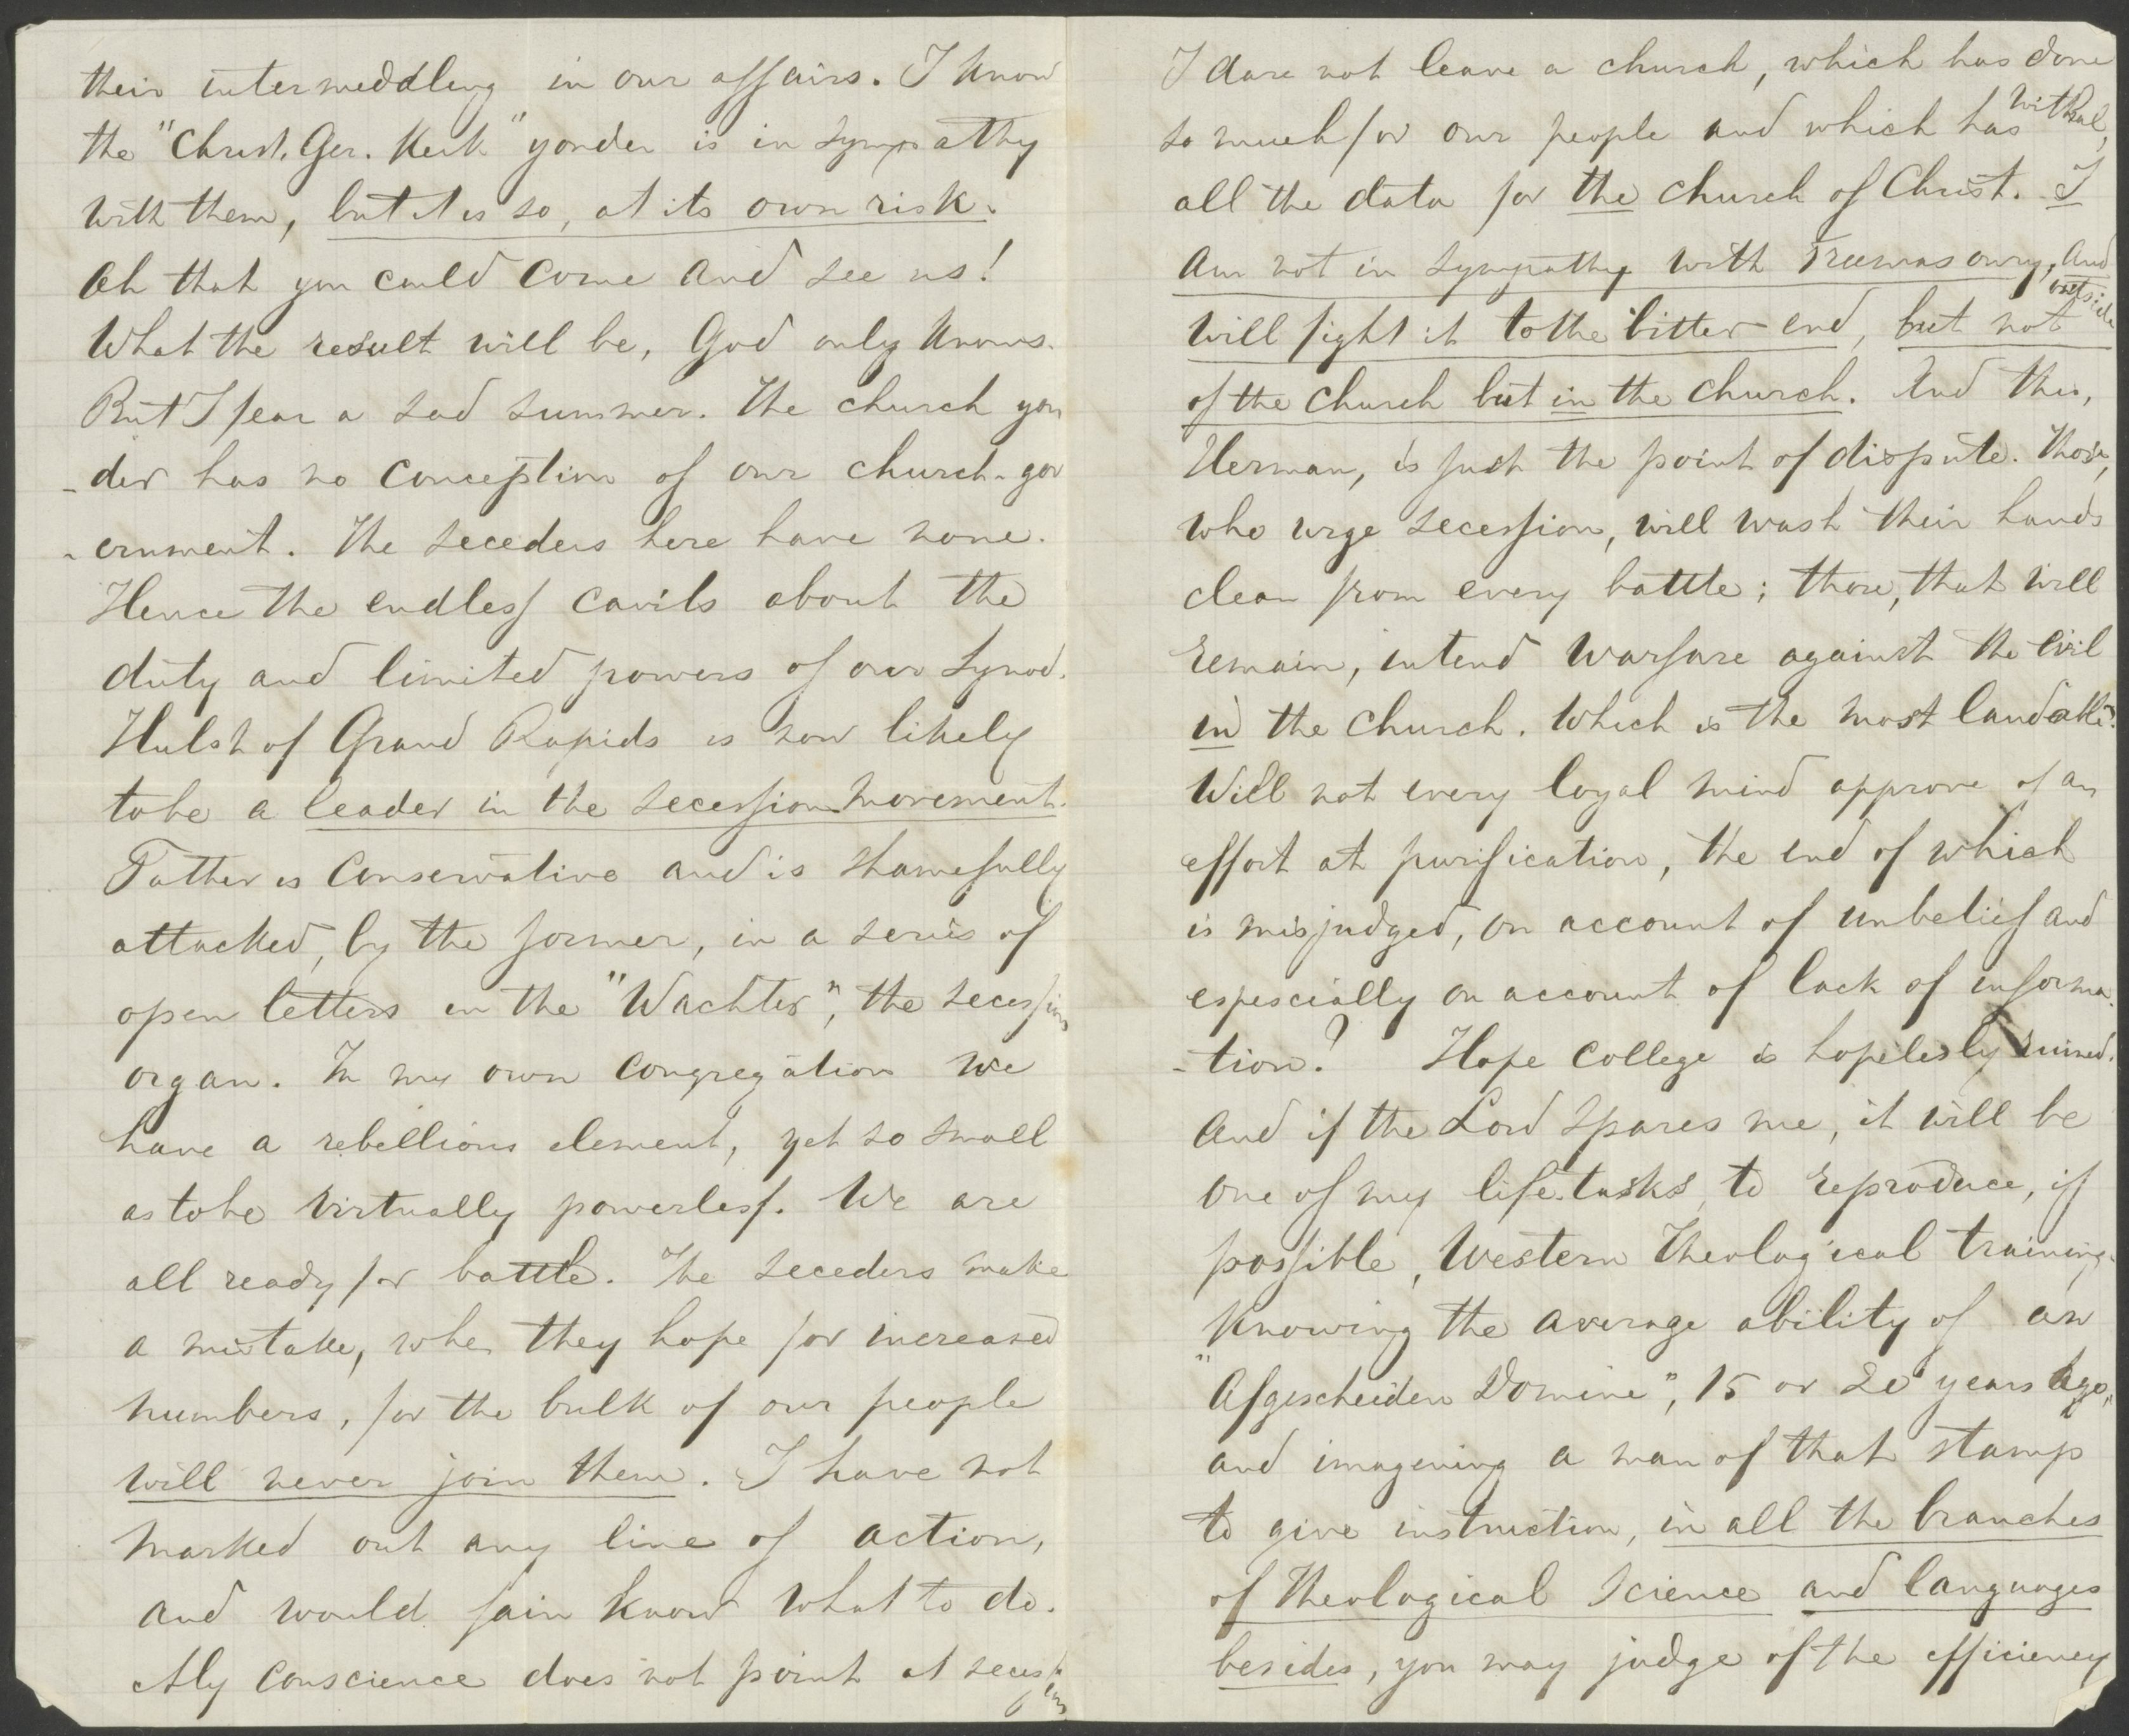 their intermeddling in our affairs. I know
the "Christ. Ger. Kerk" yonder is in sympathy
with them, but it is so, at its own risk.
Oh that you could come and see us!
What the result will be, God only knows.
But I fear a sad summer. The church yon
-der has no conception of our church-gov
-ernment. The seceders here have none.
Hence the endless cavils about the
duty and limited powers of our Synod.
Hulst of Grand Rapids is now likely
to be a leader in the secession movement.
Father is conservative and is shamefully
attacked, by the former, in a series of
open letters in the "Wachter", the secession
organ. In my own congregation we
have a rebellious element, yet so small
as to be virtually powerless. We are
all ready for battle. The seceders make
a mistake, when they hope for increased
numbers, for the bulk of our people
will never join them. I have not
marked out any line of action,
and would fain know what to do.
My conscience does not point at secession
I dare not leave a church, which has done
so much for our people and which has withal,
all the data for the church of Christ. I
am not in sympathy with Freemasonry, and
will fight it to the bitter end, but not outside
of the church but in the church. And this,
Herman, is just the point of dispute. Those,
who urge secession, will wash their hands
clean from every battle; those, that will
remain, intend warfare against the evil
in the church. Which is the most laudable?
Will not every loyal mind approve of an
effort at purification, the end of which
is misjudged, on account of unbelief and
espescially on account of lack of informa-
-tion? Hope College is hopelesly ruined.
And if the Lord spares me, it will be
one of my life-tasks, to reproduce, if
possible, Western Theological training.
Knowing the average ability of an
"Afgescheiden Domine", 15 or 20 years ago,
and imagening a man of that stamp
to give instruction, in all the branches
of Theological Science and languages
besides, you may judge of the efficiency